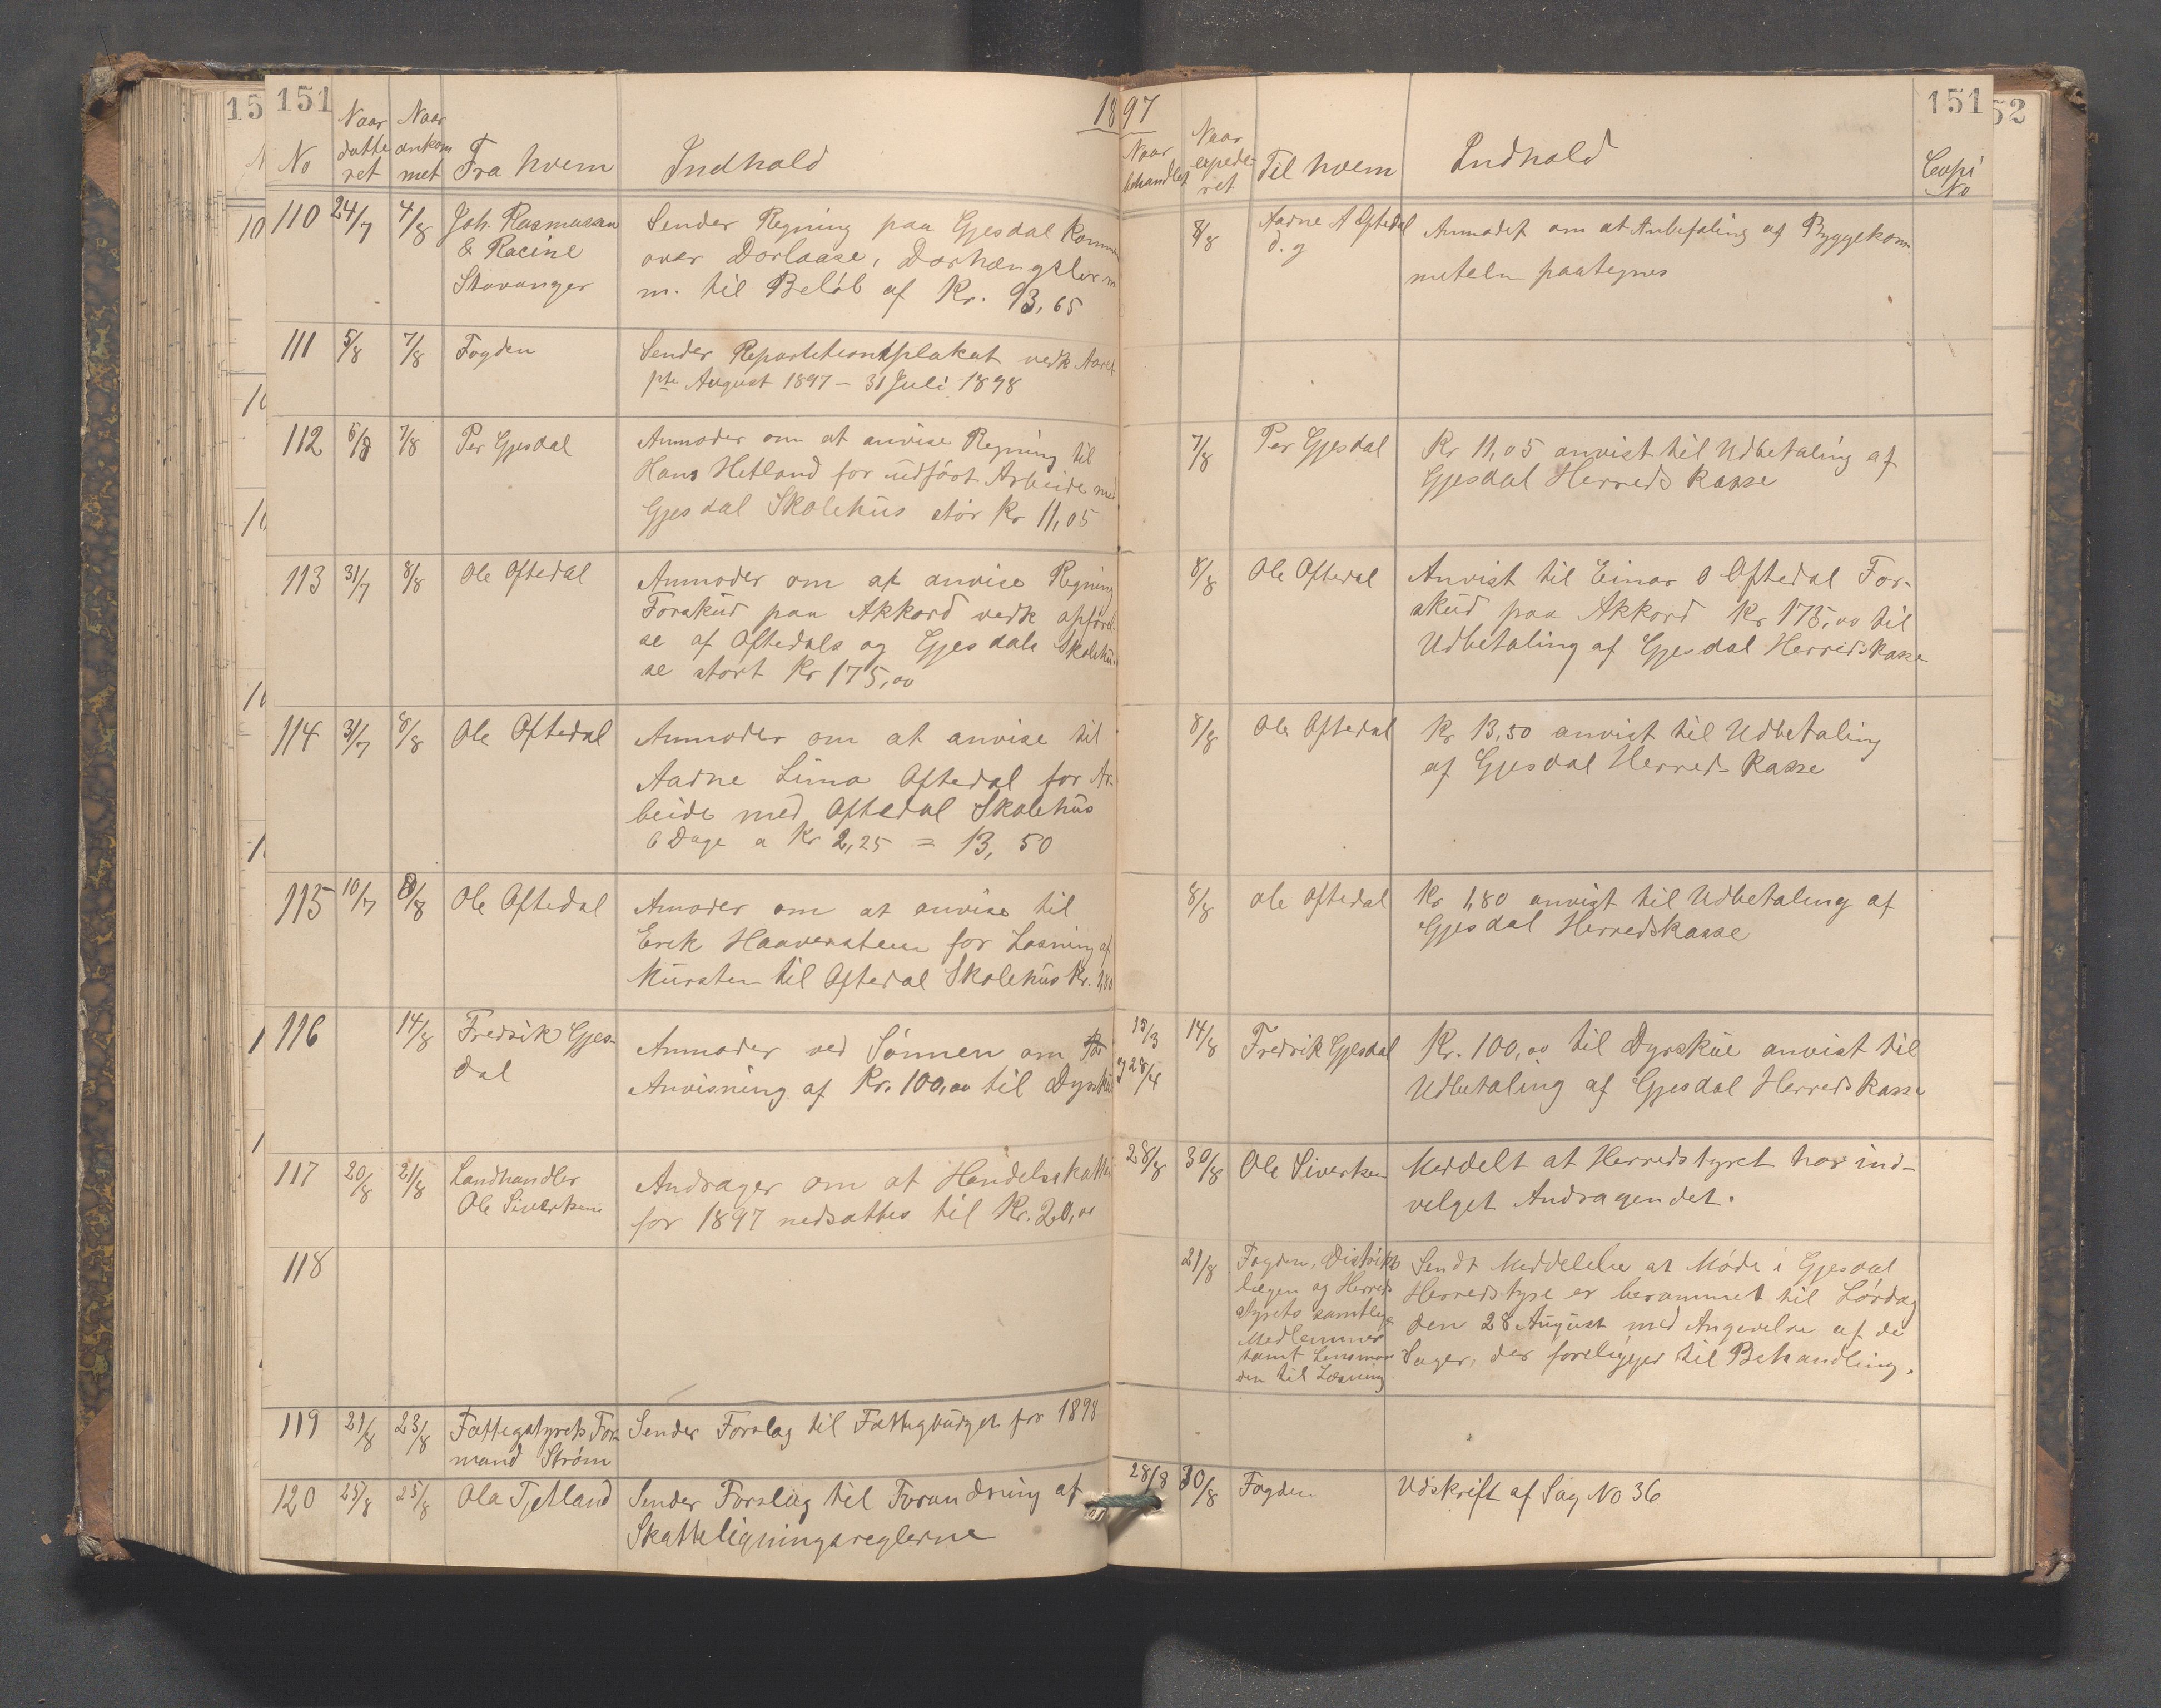 151
1897
151
No
Naar datteret
Naar ankommet
Fra hvem
Indhold
Naar behandlet
Naar expederet
Til hvem
Indhold
Copi No
110 24/7 4/8 Joh. Rasmussen
& Racine
Stavanger
Sender Regning paa Gjesdal Komm
over Dorlaase, Dorhængsler m
m. til Beløb af Kr. 93,65
8/8 Aadne A Oftedal
d. y
Anmodet om at Anbefaling af Byggekom
meteln paategnes
111 5/8 7/8 Fogden
Sender Repartitionsplakat vedk Aaret
pte August 1897 - 31 Juli 1898
112 6/8 7/8 Per Gjesdal
Anmoder om at anvise Regning til
Hans Hetland for udført Arbeide med
Gjesdal Skolehus stør Kr 11,05
7/8 Per Gjesdal
Kr 11,05 anvist til Udbetaling af
Gjesdal Herreds Kasse
113 31/7 8/8 Ole Oftedal
Anmoder om at anvise Regning
Forskud paa Akkord vedk opførel-
se af Oftedals og Gjesdals Skolehu-
se stort Kr 175,00
8/8 Ole Oftedal
Anvist til Einar O Oftedal For-
skud paa Akkord Kr 175,00 til
Udbetaling af Gjesdal Herredskasse
114 31/7 8/8 Ole Oftedal
Anmoder om at anvise til
Aadne Lima Oftedal for Ar-
beide med Oftedal Skolehus
6 Dage a Kr 2,25 = 13,50
8/8 Ole Oftedal
Kr 13,50 anvist til Udbetaling
af Gjesdal Herreds Kasse
115 10/7 8/8 Ole Oftedal
Amoder om at anvise til
Erik Haaverstein for Losning af
Mursten til Oftedal Skolehus Kr. 1,80
8/8 Ole Oftedal
Kr 1,80 anvist til Udbetaling af
Gjesdal Herredskasse
116 14/8 Fredrik Gjes-
dal
Anmoder ved Sønnen om
Anvisning af Kr. 100,00 til Dyrskue
15/3
og 28/4
14/8 Fredrik Gjesdal
Kr. 100,00 til Dyrskue anvist til
Udbetaling af Gjesdal Herreds Kasse
117 20/8 21/8 Landhandler
Ole Sivertsen
Andrager om at Handelsskatten
for 1897 nedsattes til Kr. 20,00
28/8 30/8 Ole Sivertsen
Meddelt at Herredstyret har ind-
vilget Andragendet.
118
21/8 Fogden, Distrikts
lægen og Herreds
styrets samtlige
Medlemmer
samt Lensman
den til Læsning
Sendt Meddelelse at Møde i Gjesdal
Herredstyre er berammet til Lørdag
den 28 August med Angivelse af de
Sager, der foreligger til Behandling.
119 21/8 23/8 Fattigstyrets For-
mand Strøm
Sender Forslag til Fattigbudget for 1898
120 25/8 25/8 Ola Tjetland
Sender Forslag til Forandring af
Skatteligningsreglerne
28/8 30/8 Fogden
Udskrift af Sag No 36